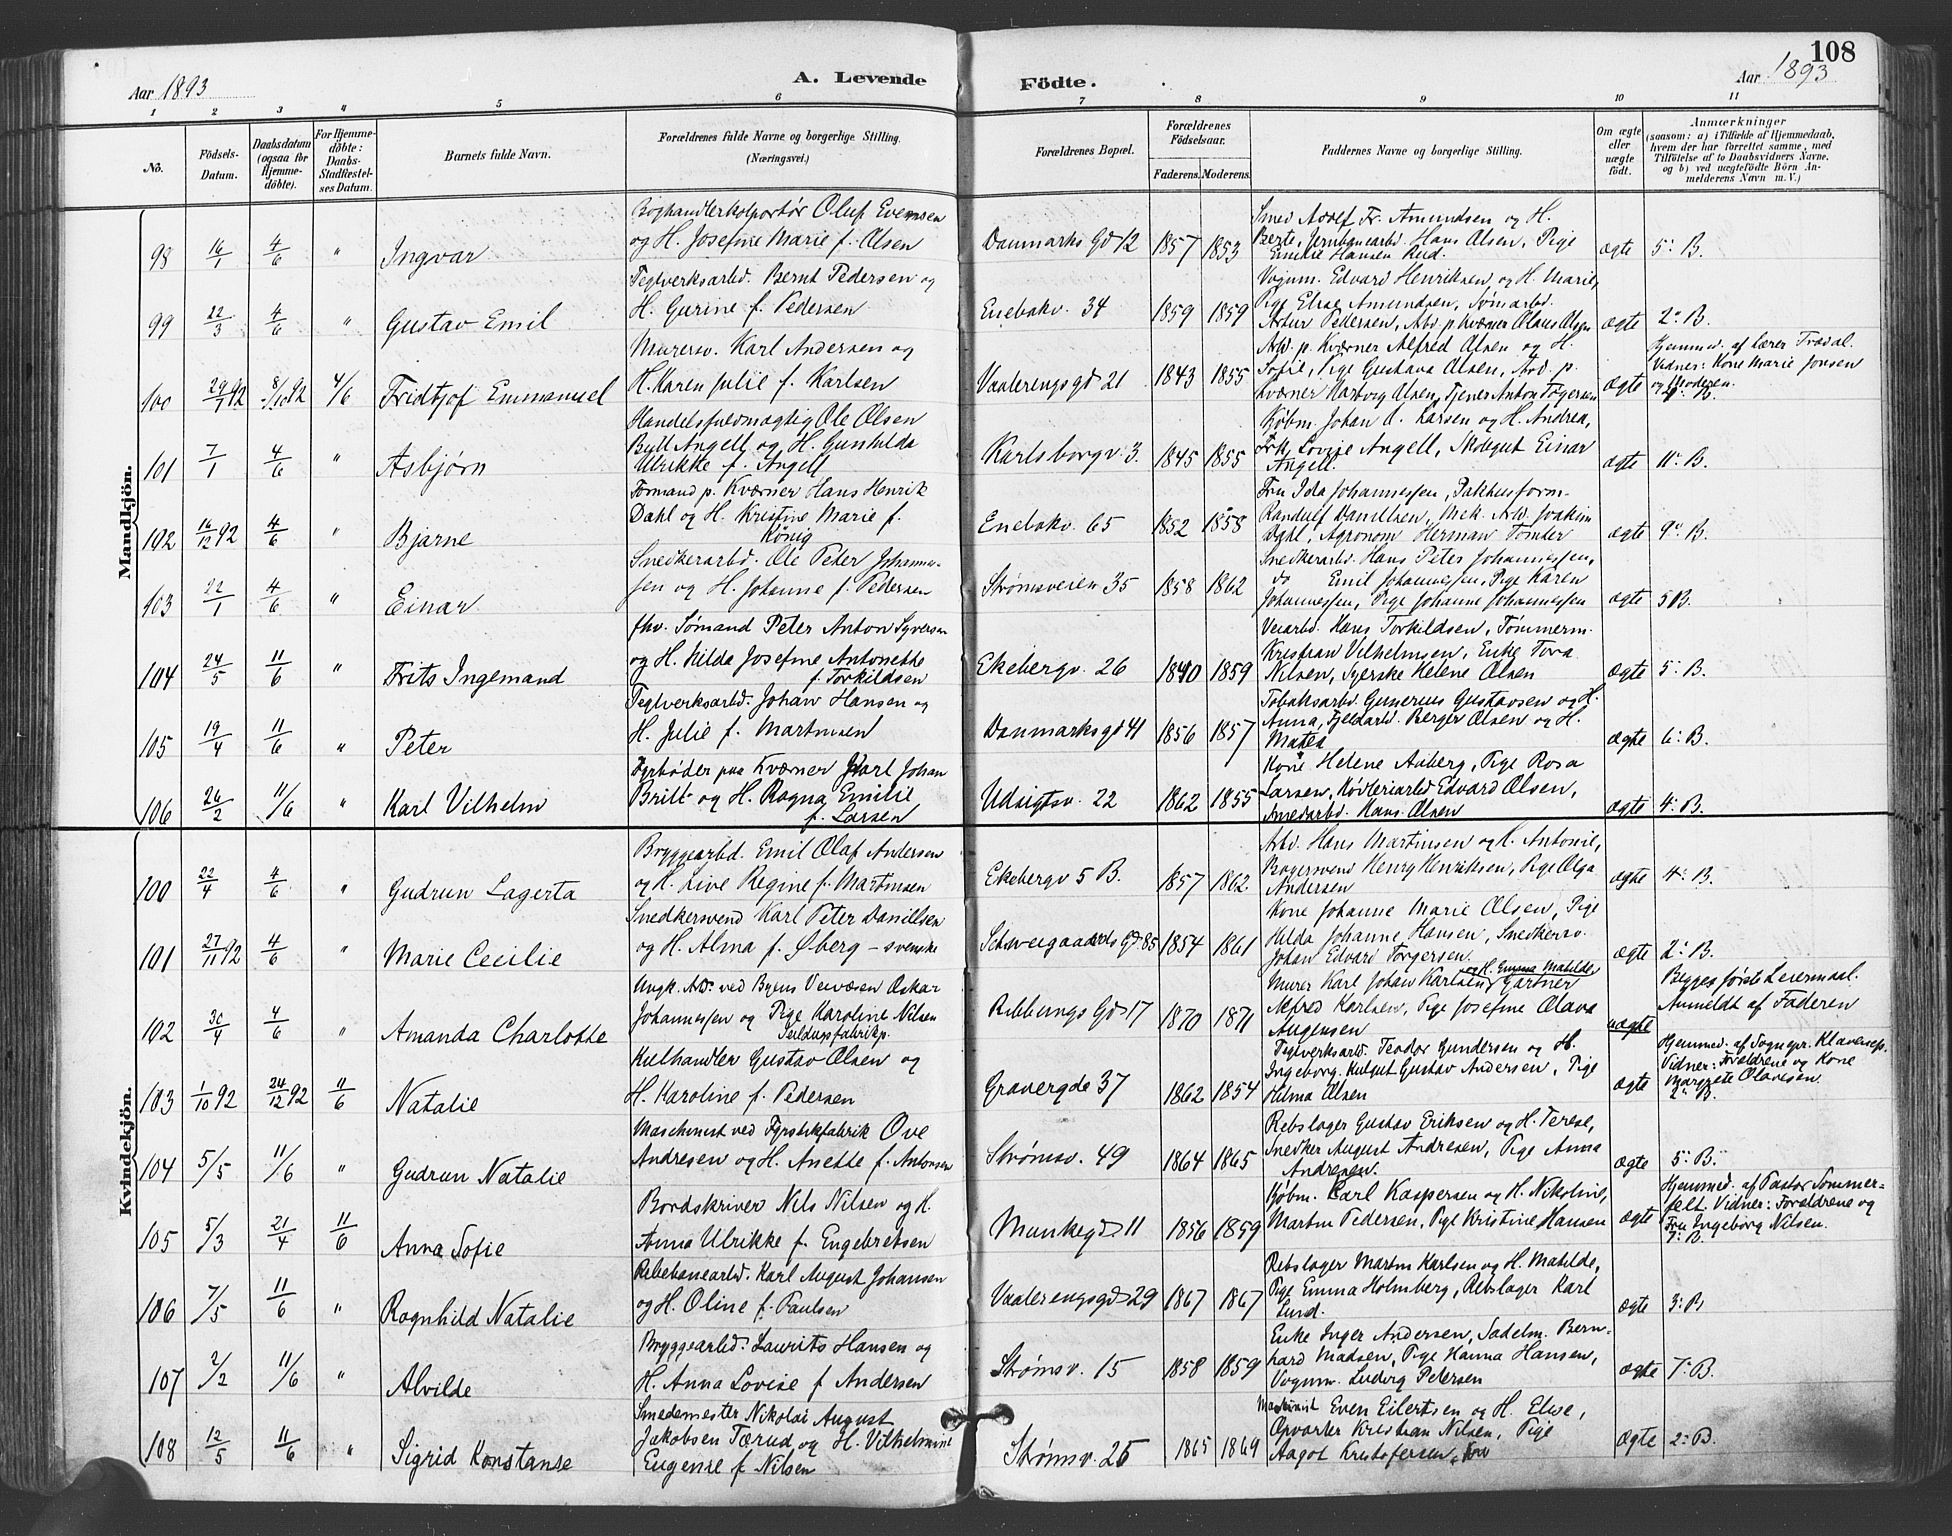 108
Aar 1893
A. Levende
Födte.
Aar 1893
1 2 3 „ 5 6 7 8 9 10 11
No.
Födsels-Datum.
Daabsdatum (ogsaa for Hjemme-döbte).
For Hjemme-döbte: Daabs-Stadfæstel-ses Datum.
Barnets fulde Navn.
Forældrenes fulde Navne og borgerlige Stilling.
(Næringsvei.)
Forældrenes Bopæl.
Forældrenes Födselsaar.
Faderens. Moderens.
Faddernes Navne og borgerlige Stilling.
Om ægte eller uægte födt.
Anmærkninger
(saasom: a) i Tilfælde af Hjemmedaab,
hvem der har forrettet samme, med
Tilföielse af to Daabsvidners Navne,
og b) ved uægtefödte Börn An-
melderens Navn m. V.)
Mandkjön.
98 16/1 4/6 „ Ingvar
Boghandlerkolportør Oluf Evensen
og H. Josefine Marie f. Olsen
Danmarks Gd 12 1857 1853
Smed Adolf Fr. Amundsen og H.
Berte, Jernbanearbd. Hans Olsen, Pige
Emilie Hansen Rud.
ægte 5: B.
99 22/3 4/6 „ Gustav Emil
Teglverksarbd. Bernt Pedersen og
H. Gurine f. Pedersen
Enebakv. 34 1859 1859
Vognm. Edvard Henriksen og H. Marie,
Pige Elise Amundsen, Sømarbd.
Artur Pedersen, Arb. p. Kværner Olaus Olsen
ægte 2: B.
100 29/7 92 8/10 92 4/6 Fridtjof Emmanuel
Murersv. Karl Andersen og
H. Karen Julie f. Karlsen
Vaalerengsgd 21 1843 1855
Arb. p. Kværner Alfred Olsen og H.
Sofie, Pige Gustava Olsen, Arb. p.
Kværner Harborg Olsen, Tjener Anton Tøgersen
ægte
Hjemmed. af Lærer Trædal.
Vidner: Kone Marie Jonsen
og Moderen.
101 7/1 4/6 „ Asbjørn
Handelsfuldmægtig Ole Olsen
Byll Angell og H. Gunhilda
Ulrikke f. Angell
Karlsborgv. 3. 1845 1855
Kjøbm. Johan A. Larsen og H. Andrea,
Frk. Lovise Angell, Skolegut Einar
Angell.
ægte 11: B.
102 16/12 92 4/6 „ Bjarne
Formand p. Kværner Hans Henrik
Dahl og H. Kristine Marie f.
König
Enebakv. 65 1852 1858
Fru Ida Johannessen, Pakhusform.
Randulf Danielsen, Mek. Arb. Joakim
Dahl, Agronom Herman Tomter
ægte 9: B.
103 22/1 4/6 „ Einar
Snedkerarbd. Ole Peter Johannes-
sen og H. Johanne f. Pedersen
Strømsveien 35 1858 1862
Snedkerarbd. Hans Peter Johannessen,
do Emil Johannessen, Pige Karen
Johannessen, Pige Johanne Johannessen
ægte 5 B.
104 24/5 11/6 „ Frits Ingemand
fhv. Sømand Peter Anton Syversen
og H. Hilda Josefine Antonette
f. Torkildsen
Ekebergv. 26 1840 1859
Veiarbd. Hans Torkildsen, Tømmerm.
Kristian Vilhelmsen, Enke Tora
Nilsen, Syerske Helene Olsen
ægte 5: B.
105 19/4 11/6 „ Peter
Teglverksarbd. Johan Hansen og
H. Julie f. Martinsen
Danmarksgd 41 1856 1857
Tobaksarbd. Gunerius Gustavsen og H.
Anna, Fjeldarbd. Berger Olsen og H.
Matea
ægte 6: B.
106 26/2 11/6 „ Karl Vilhelm
Fyrbøder paa Kværner Karl Johan
Britt og H. Ragna Emilie
f. Larsen
Udsigtsv. 22 1862 1855
Kone Helene Auberg, Pige Rosa
Larsen, Høvleriarbd Edvard Olsen,
Smedarbd. Hans Olsen
ægte 4: B.
Kvindekjön.
100 22/4 4/6 „ Gudrun Lagerta
Bryggearbd. Emil Olaf Andersen
og H. Live Regine f. Martinsen
Ekebergv 5 B. 1857 1862
Arb. Hans Martinsen og H. Antonie,
Bagersvend Henry Henriksen, Pige Olga
Andersen
ægte 4: B.
101 27/11 92 4/6 „ Marie Cecilie
Snedkersvend Karl Peter Danielsen
og H. Alma f. Øberg – svenske
Schweigaards Gd. 85 1854 1861
Kone Johanne Marie Olsen, Pige
Hilda Johanne Hansen, Snedkersv.
Johan Edvard Torgersen.
ægte 2: B.
102 30/4 4/6 „ Amanda Charlotte
Ungk. Arb. ved Byens Veivæsen Oskar
Johannessen og Pige Karoline Nilsen
Seildugsfabrikp.
Ribbungs Gd 17 1870 1871
Murer Karl Johan Karlsen og H. Emma Matilde, Gartner
Alfred Karlsen, Pige Josefine Olava
Augensen
uægte
Begges første Leiermaal.
Anmeldt af Faderen
103 1/10 92 24/12 92 11/6 Natalie
Kulhandler Gustav Olsen og
H. Karoline f. Pedersen
Gravergde 37 1862 1854
Teglverksarbd. Teodor Gundersen og H.
Ingeborg, Kulgut Gustav Andersen, Pige
Hilma Olsen
ægte
Hjemmed. af Sognepr. Klavenesp.
Vidner: Forældrene og Kone
Margrete Olavesen.
2: B.
104 5/5 11/6 „ Gudrun Natalie
Maschinist ved Fyrstikfabrik Ove
Andresen og H. Anette f. Antonsen
Strømsv. 49 1864 1865
Rebslager Gustav Eriksen og H. Terese,
Snedker August Andresen, Pige Anna
Andresen.
ægte 5: B.
105 5/3 21/4 11/6 Anna Sofie
Bordskriver Nils Nilsen og H.
Anna Ulrikke f. Engebretsen
Munkegd 11 1856 1859
Kjøbm. Carl Kaspersen og H. Nikoline,
Martin Pedersen, Pige Kristine Hansen
ægte
Hjemmed. af Pastor Sommer-
felt. Vidner: Forældrene og
Fru Ingeborg Nilsen.
7: B.
106 7/5 11/6 „ Ragnhild Natalie
Rebebanearbd. Karl August Johansen
og H. Oline f. Paulsen
Vaalerengsgd 29 1867 1867
Rebslager Martin Karlsen og H. Matilde,
Pige Emma Holmberg, Rebslager Karl
Lund.
ægte 3: B
107 2/2 11/6 „ Alvilde
Bryggearbd. Laurits Hansen og
H. Anna Lovise f Andersen
Strømsv. 15 1858 1859
Enke Inger Andersen, Sadelm. Bern-
hard Madsen, Pige Hanna Hansen,
Vognm. Ludvig Petersen
ægte 7: B.
108 12/5 11/6 „ Sigrid Konstanse
Smedemester Nikolai August
Jakobsen Tærud og H. Vilhelmine
Eugenie f Nilsen
Strømsv. 25 1865 1869
Maskinist Even Eilertsen og H. Elise,
Opvarter Kristian Nilsen, Pige
Aagot Kristofersen,
ægte 2: B.